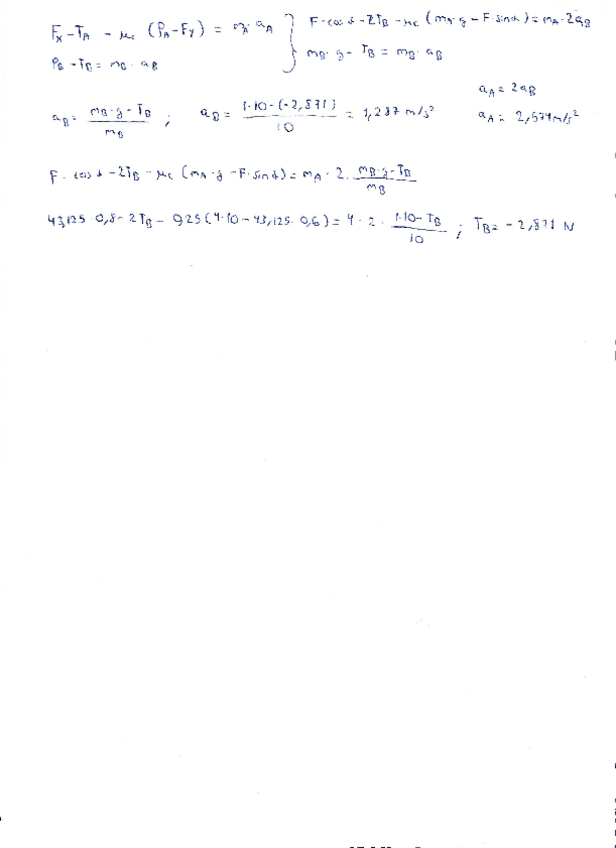 Fx - TA - μc (PA - Fy) = mA · aA } F · cos α - 2TB - μc (mA · g - F · sin α) = mA · 2aB
PB - TB = mB · aB } mB · g - TB = mB · aB
aA = 2aB
aB = (mB · g - TB) / mB ; aB = (1·10 - (-2,871)) / 10 = 1,287 m/s² aA = 2,574 m/s²
F · cos α - 2TB - μc (mA · g - F · sin α) = mA · 2 · (mB · g - TB) / mB
43,125 · 0,8 - 2TB - 0,25 (4·10 - 43,125 · 0,6) = 4 · 2 · (1·10 - TB) / 10 ; TB = -2,871 N